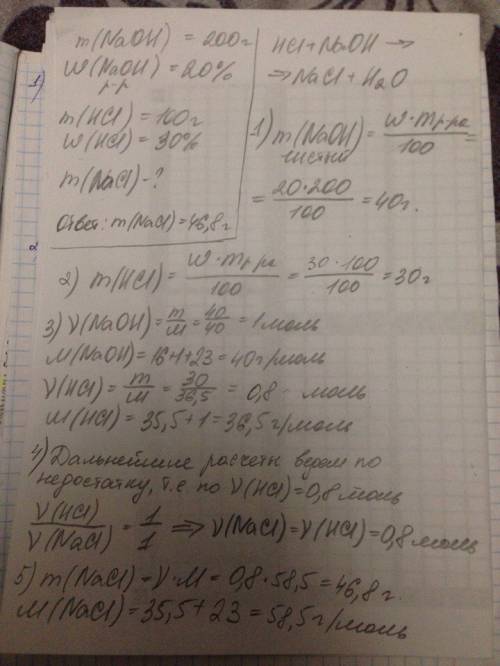 m(NaOH) = 200г
W(NaOH) = 20%
р-р
m(HCl) = 100г
W(HCl) = 30%
m(NaCl) - ?
Ответ: m(NaCl) = 46,8г
HCl + NaOH →
→ NaCl + H₂O
1) m(NaOH) = W·mр-ра / 100 =
чистый
= 20·200 / 100 = 40г.
2) m(HCl) = W·mр-ра / 100 = 30·100 / 100 = 30г
3) ν(NaOH) = m/M = 40/40 = 1 моль
M(NaOH) = 16+1+23 = 40г/моль
ν(HCl) = m/M = 30/36,5 = 0,8 моль
M(HCl) = 35,5+1 = 36,5г/моль
4) Дальнейшие расчеты ведем по
недостатку, т.е. по ν(HCl) = 0,8 моль
ν(HCl)/ν(NaCl) = 1/1 ⇒ ν(NaCl) = ν(HCl) = 0,8 моль
5) m(NaCl) = ν·M = 0,8·58,5 = 46,8г.
M(NaCl) = 35,5+23 = 58,5г/моль